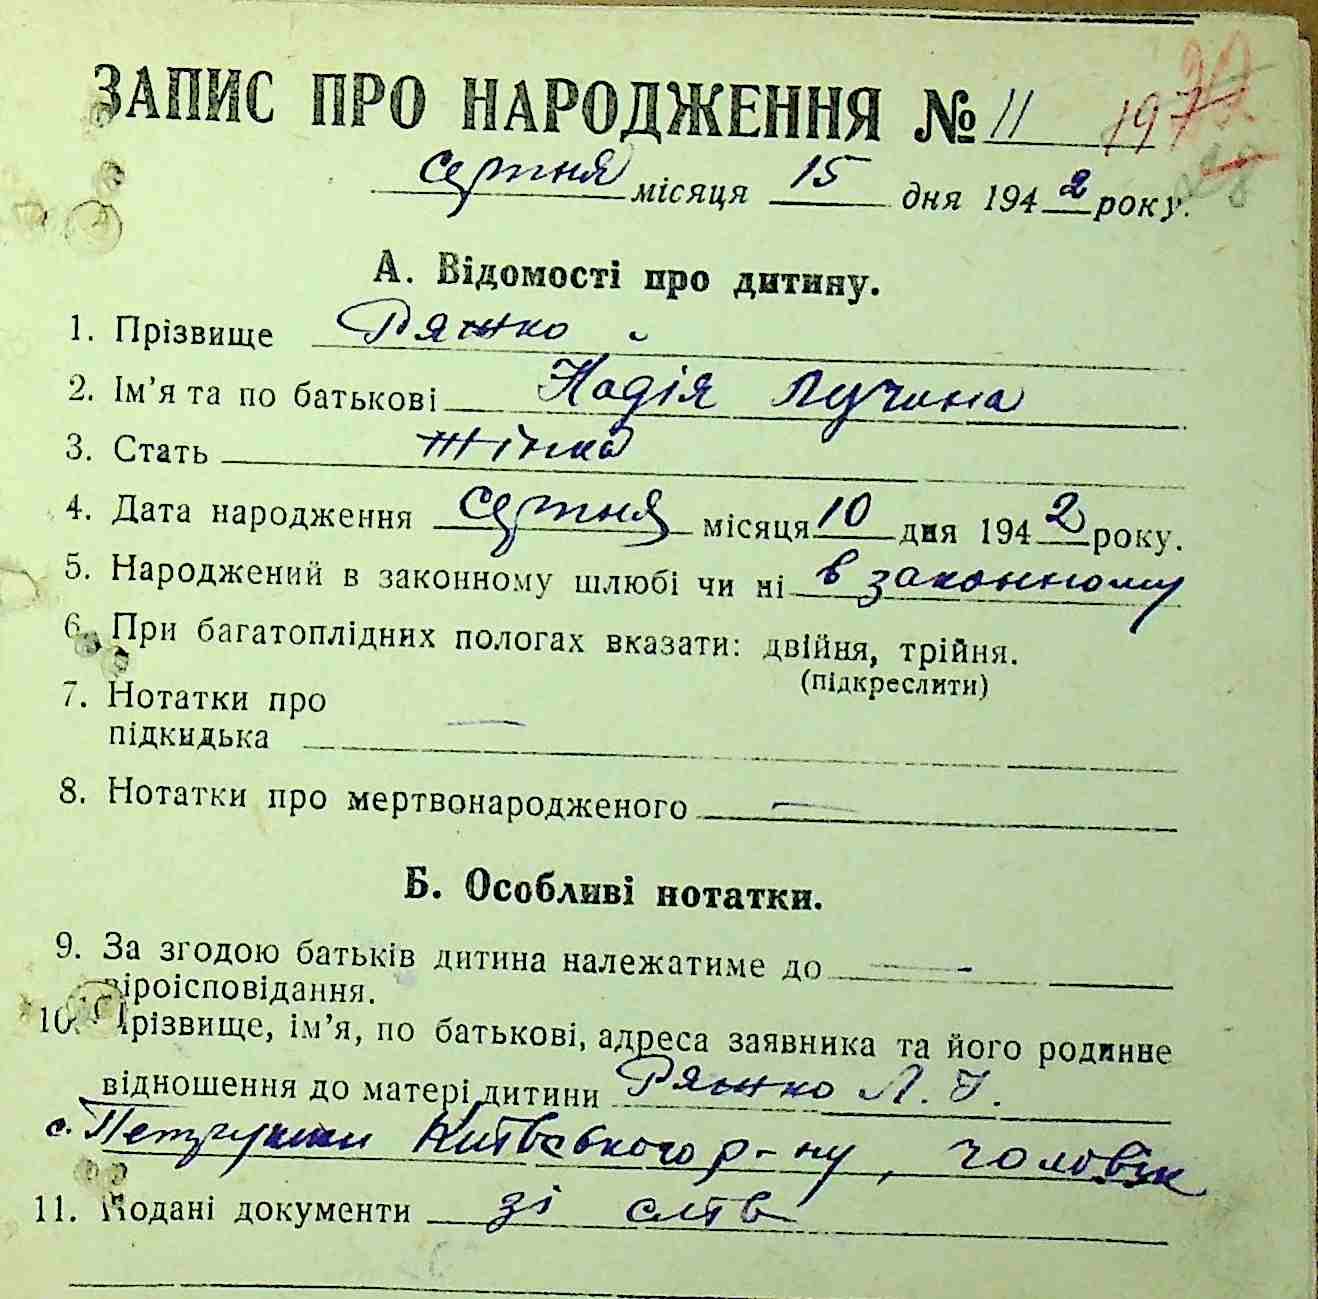 ЗАПИС ПРО НАРОДЖЕННЯ № 11 197
серпня місяця 15 дня 1942 року.
А. Відомості про дитину.
1. Прізвище Ряжко
2. Ім'я та по батькові Надія Лучина
3. Стать жінка
4. Дата народження серпня місяця 10 дня 1942 року.
5. Народжений в законному шлюбі чи ні в законному
6. При багатоплідних пологах вказати: двійня, трійня.
(підкреслити)
7. Нотатки про
підкидька —
8. Нотатки про мертвонародженого —
Б. Особливі нотатки.
9. За згодою батьків дитина належатиме до —
віроісповідання.
10. Прізвище, ім'я, по батькові, адреса заявника та його родинне
відношення до матері дитини Ряжко Л. І.
с. Петрушки Київського р-ну, чоловік
11. Подані документи зі слів